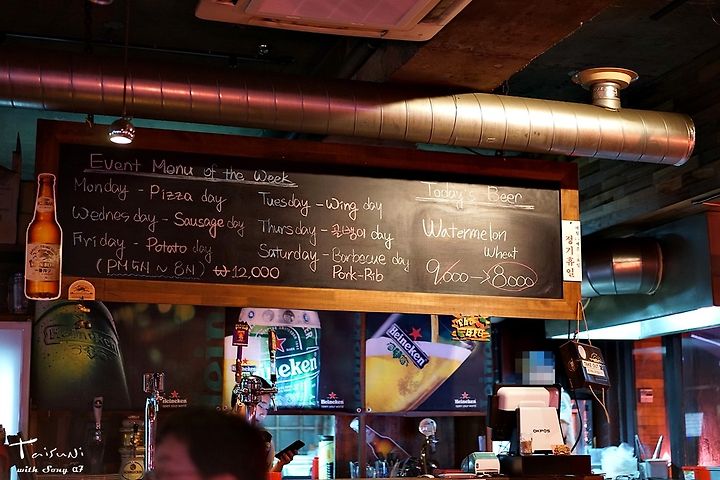 Event Menu of the Week
Monday - Pizza day
Tuesday - Wing day
Wednesday - Sausage day
Thursday - 골뱅이 day
Friday - Potato day
Saturday - Barbecue day
Pork-Rib
(PM 5시 ~ 8시) ₩12,000
Today's Beer
Watermelon
Wheat
9,000 → 8,000
정기휴일
Heineken
Heineken
Heineken
Heineken
Heineken
Heineken
OKPOS
TaisuNi
with Sony a7